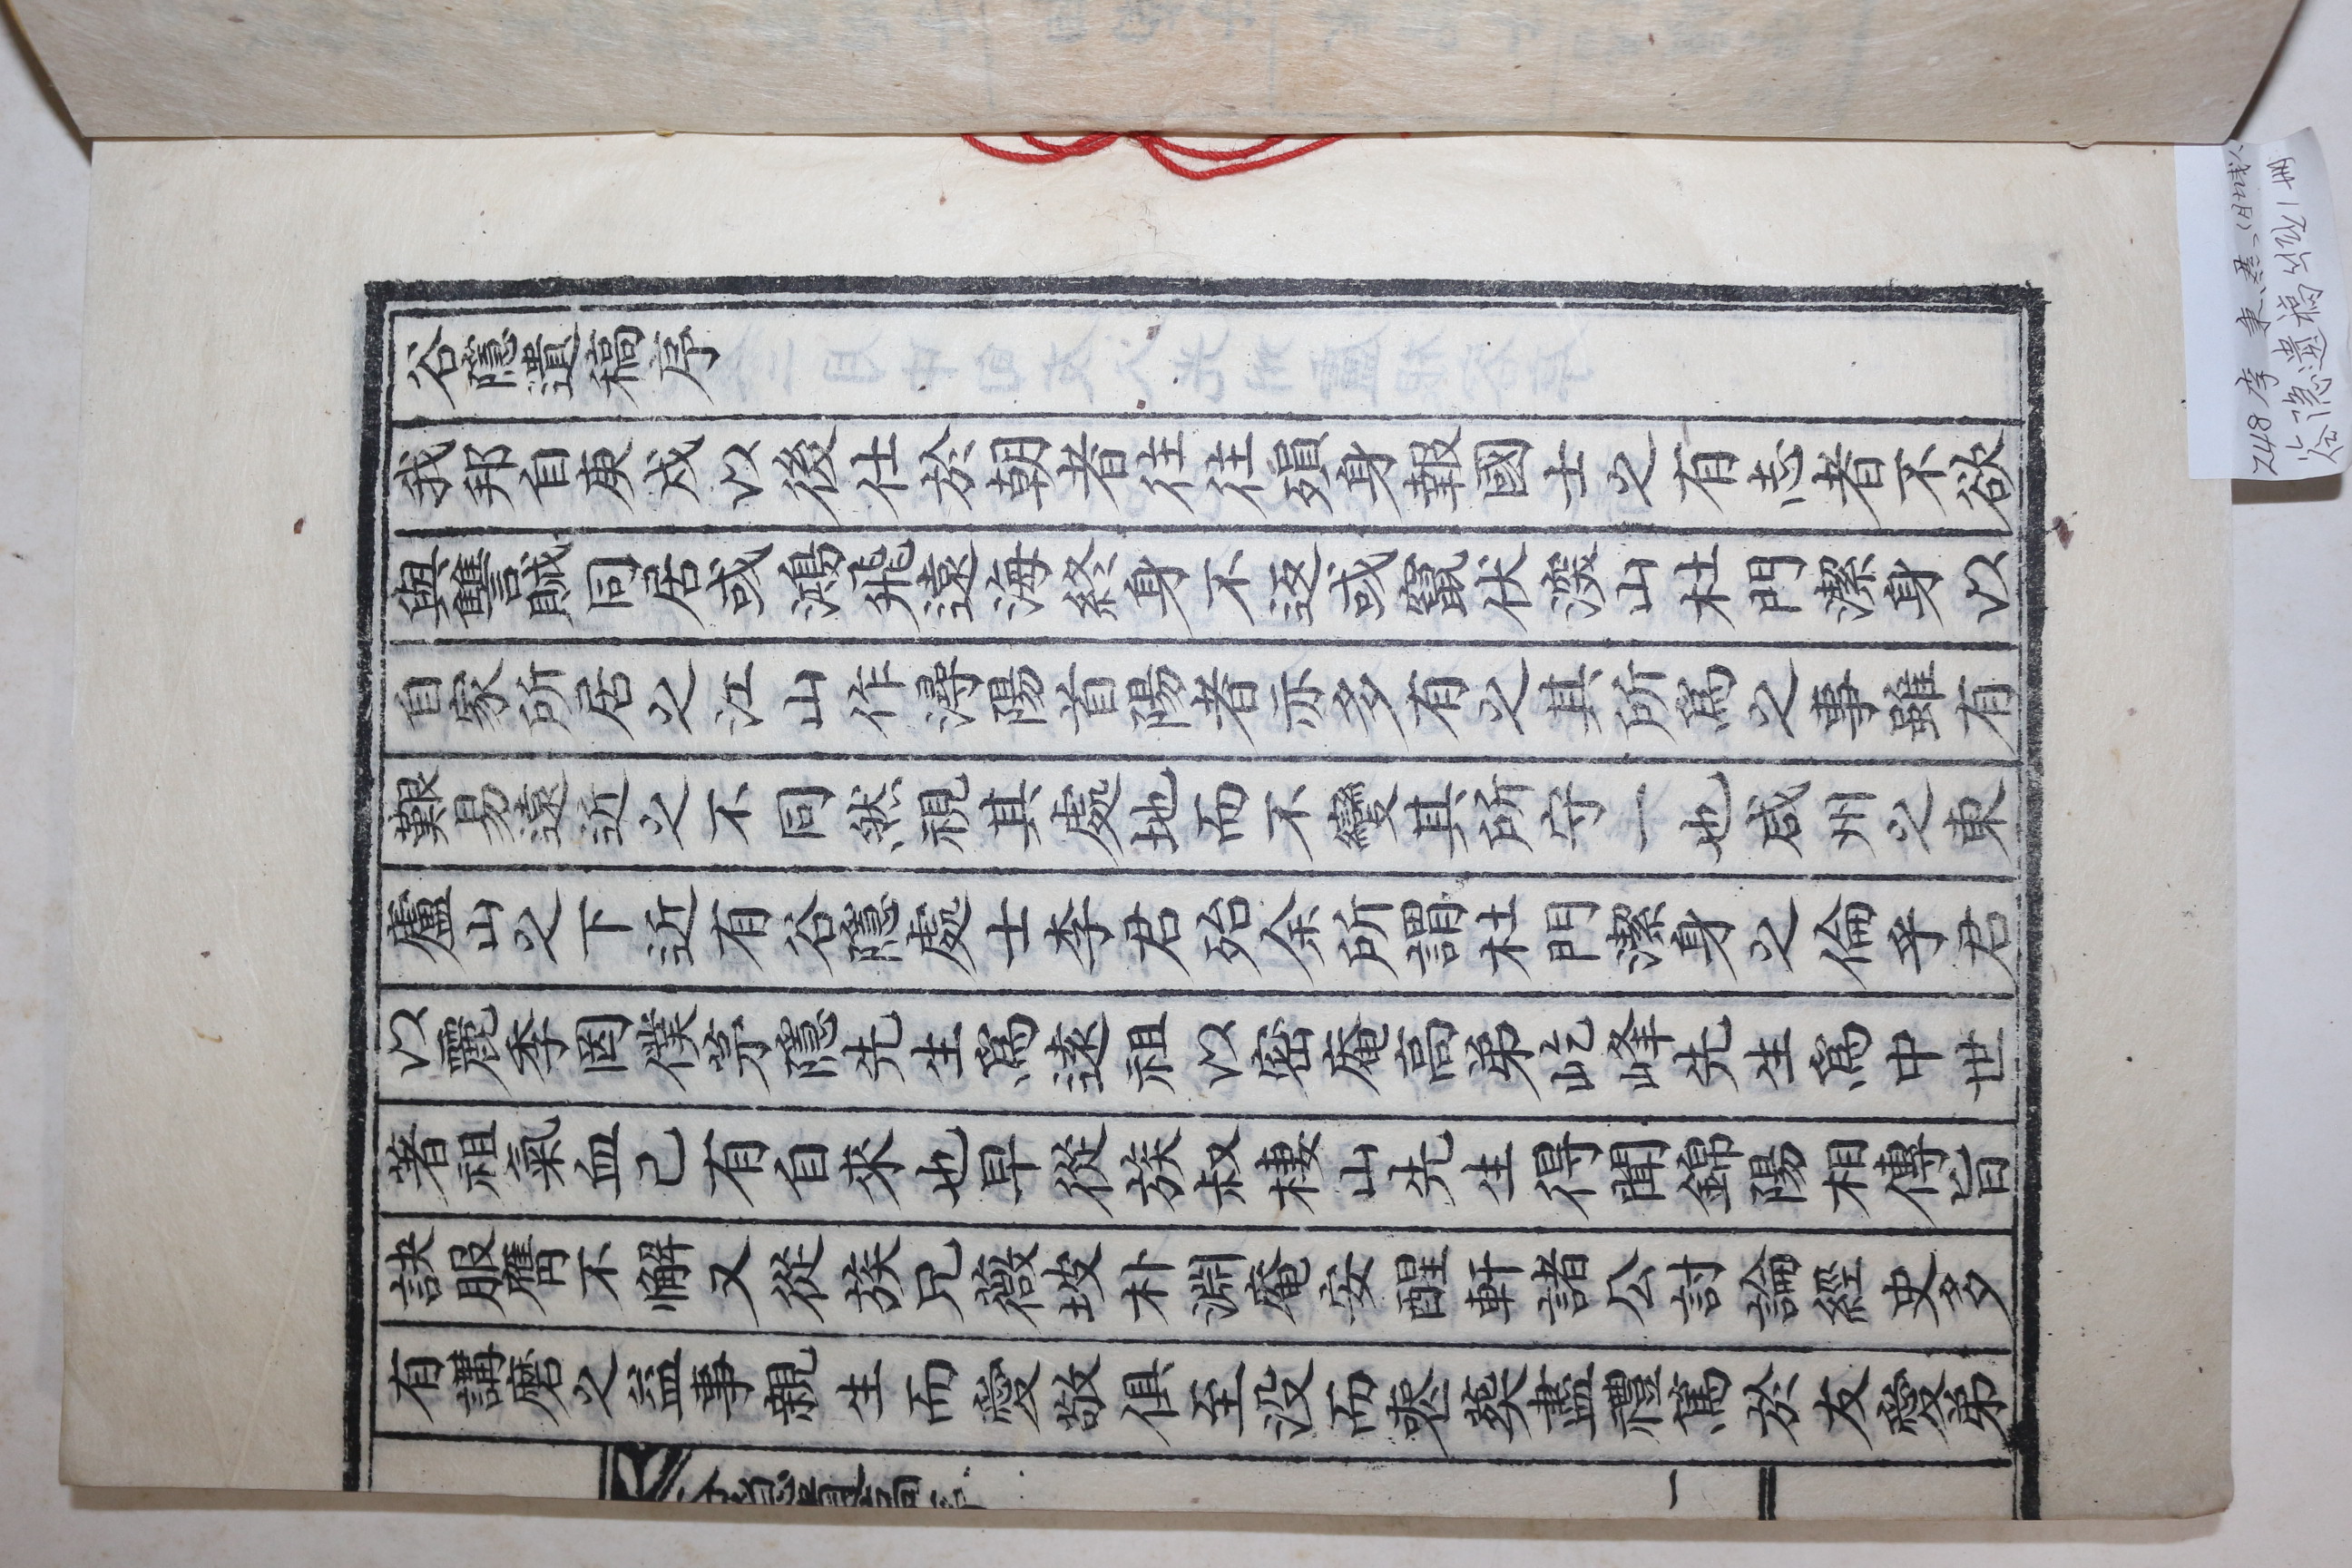 谷隱遺稿序
我邦自庚戌以後仕於朝者往往殞身報國士之有志者不欲
與讐賊同居或鴻飛遠海終身不返或竄伏深山杜門潔身以
自家所居之江山作潯陽首陽者亦多有之其所爲之事雖有
艱易遠近之不同然視其處地而不變其所守一也咸州之東
廬山之下近有谷隱處士李君殆余所謂杜門潔身之倫乎君
以麗季罔僕茅隱先生爲遠祖以密庵高弟屹峰先生爲中世
著祖氣血已有自來也早從族叔棲山先生得聞錦陽相傳旨
訣服膺不懈又從族兄薇坡朴淵庵安醒軒諸公討論經史多
有講磨之益事親生而愛敬俱至没而喪葬盡禮篤於友愛弟
谷隱遺稿序
一
248 李秉
谷隱遺稿 석판 1册